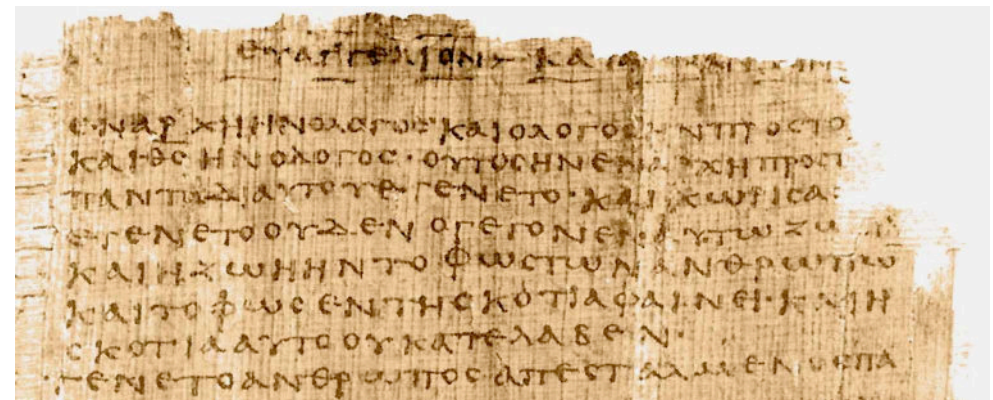 ΕΥΑΓΓΕΛΙΟΝ ΚΑΤΑ
ΕΝΑΡΧΗΗΝΟΛΟΓΟΣ ΚΑΙΟΛΟΓΟΣΗΝΠΡΟΣΤΟ
ΚΑΙΘΣΗΝΟΛΟΓΟΣ · ΟΥΤΟΣΗΝΕΝΑΡΧΗΠΡΟΣΤ
ΠΑΝΤΑΔΙΑΥΤΟΥΕΓΕΝΕΤΟ · ΚΑΙΧΩΡΙΣΑ
ΕΓΕΝΕΤΟΟΥΔΕΝ ΟΓΕΓΟΝΕΝΑΥΤΩΖΩ
ΚΑΙΗΖΩΗΗΝΤΟ ΦΩΣΤΩΝΑΝΘΡΩΠΩ
ΚΑΙΤΟΦΩΣΕΝΤΗΣΚΟΤΙΑΦΑΙΝΕΙ · ΚΑΙΗ
ΣΚΟΤΙΑΑΥΤΟΟΥΚΑΤΕΛΑΒΕΝ ·
ΓΕΝΕΤΟΑΝΘΡΩΠΟΣΑΠΕΣΤΑΛΜΕΝΟΣΠΑ